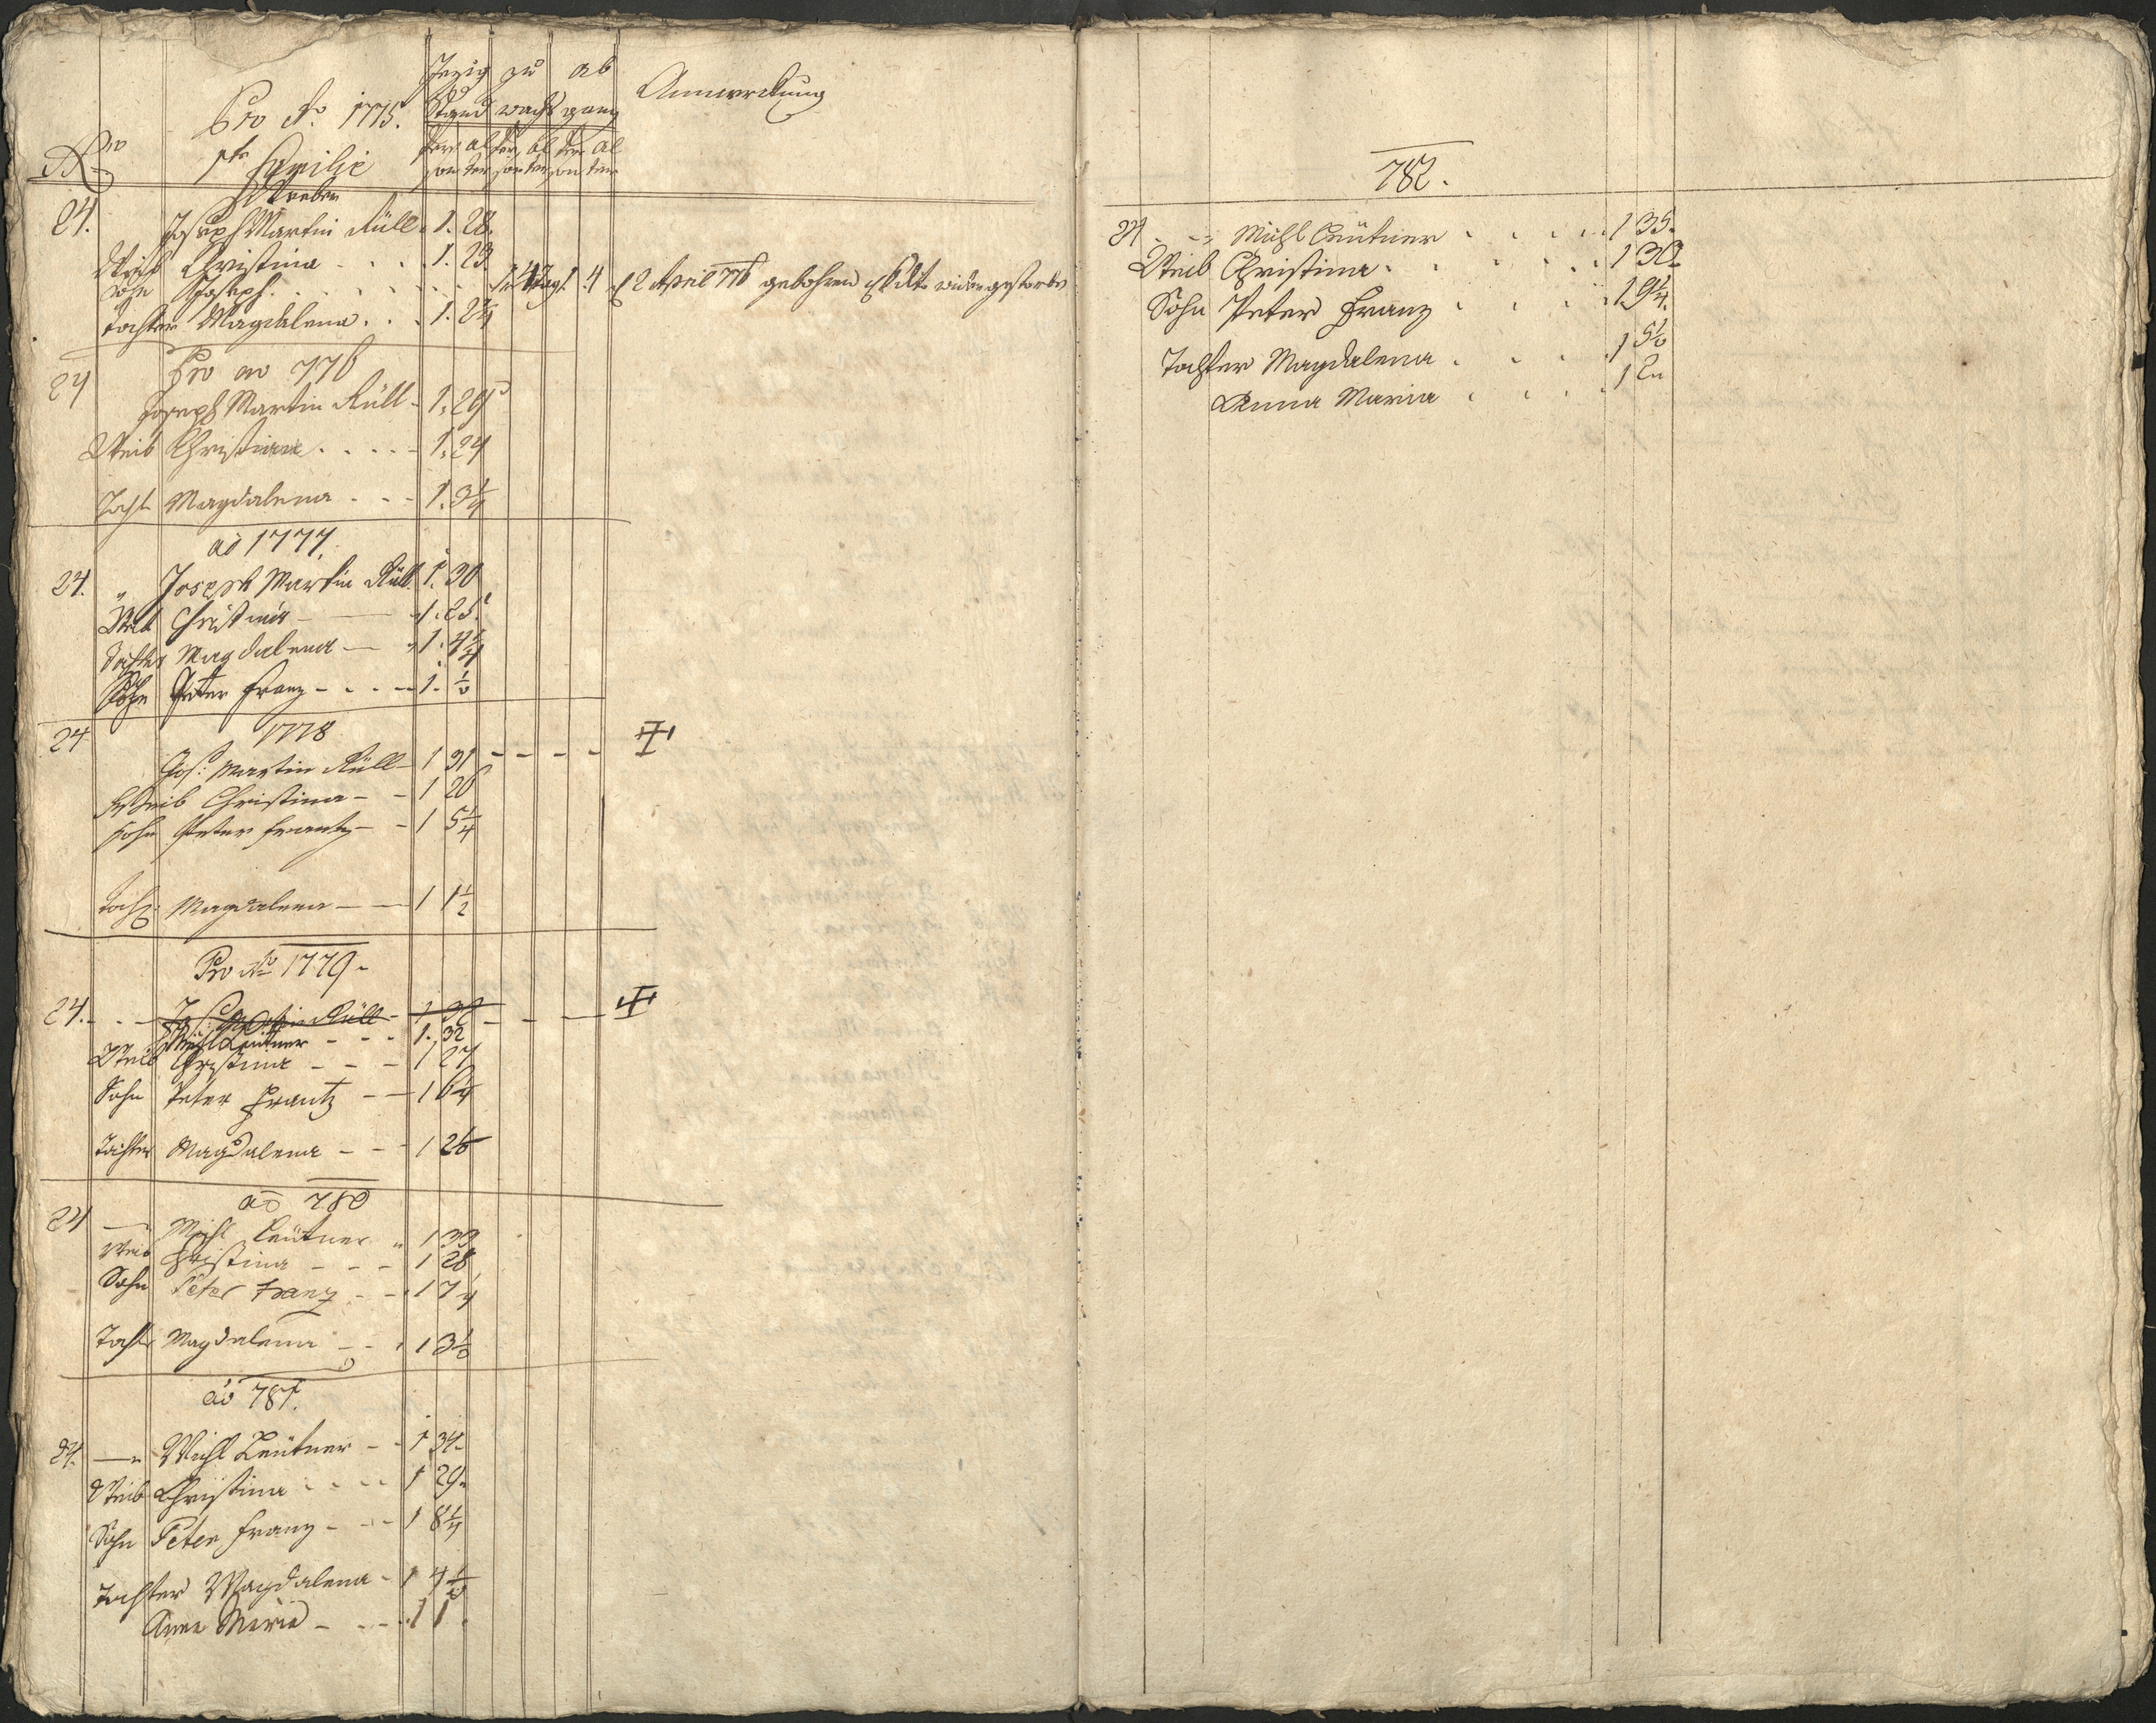 Jezig zu ab Anmerckung
Pro Ao 1775. Stand wachs gang
Nro Familie Per Al Per Al Per Al
son ter son ter son ter
24. Joseph Martin Rüll 1. 28.
Weib Christina . . . 1. 23
Sohn Joseph . . . . . 1. 4 Tag 1. 4 2 April 776 gebohren wider gestorben
Tochter Magdalena . . . 1. 2 1/4
24 Pro ao 776
Joseph Martin Rüll - 1. 29
Weib Christina . . . . - 1. 24
Tocht Magdalena . . - 1. 3 1/4
ao 1777.
24. " Joseph Martin Rüll 1. 30
Weib Christina - 1. 25.
Tochter Magdalena - 1. 4 1/4
Sohn Peter Franz - . . - 1. 1/2
24 1778
Jos: Martin Rüll - 1 31 - - - -
Weib Christina - - 1 26
Sohn Peter Frantz - - 1 5 1/4
Tocht: Magdalena - - 1 1 1/2
Pro Ao 1779.
24. - . - Jos: Martin Rüll - 1 32 - - -
Michl Leütner - - - 1. 32
Weib Christina - - - 1 27
Sohn Peter Frantz - - 1 6 1/4
Tochter Magdalena - - 1 2 1/2
ao 780
24 - Michl Leütner " 1 33
Weib Christina - - - 1 28
Sohn Peter Franz . - - 1 7 1/4
Tocht Magdalena - - . 1 3 1/2
ao 781.
24. - " Michl Leütner - - 1 34.
Weib Christina - - - - 1 29.
Sohn Peter Franz - - - 1 8 1/4
Tochter Magdalena - 1 4 1/2
Anna Maria - . - . 1 1.
782.
24 . - " Michl Leütner . . . . . 1 35.
Weib Christina . . . . . . 1 30.
Sohn Peter Franz . . . . 1 9 1/4.
Tochter Magdalena . . . . 1 5 1/2
Anna Maria . . . . 1 2 "